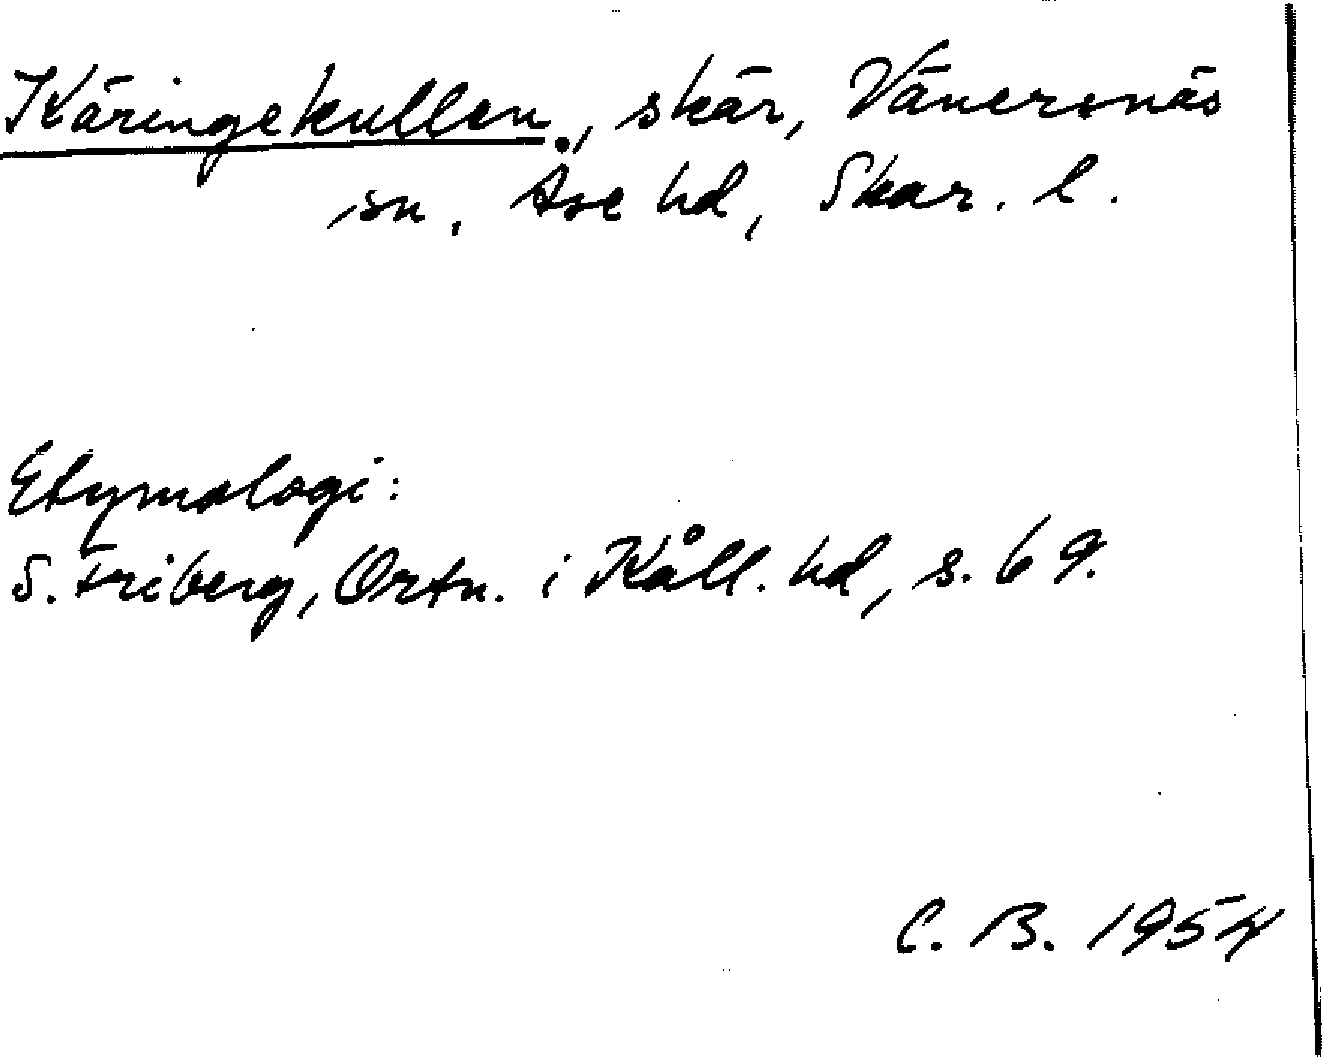 Käringekullen., skär, Vänersnäs
sn, Åse hd, Skar. l.
Etymologi:
S. Friberg, Ortn. i Kåll. hd, s. 69.
C. B. 1954